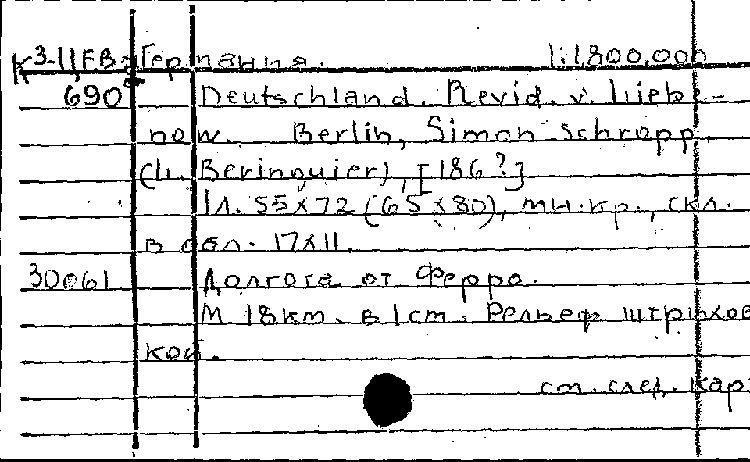 К3-11/FB Германия. 1:1.800.000
690 Deutschland. Revid. v. Liebe-
now. Berlin, Simon Schropp
(L. Beringuier), [186?]
1л. 55х72 (65х80), мн.кр., скл.
в обл. 17х11.
30061 Долгота от Ферро.
М 18км. в 1см. Рельеф штрихов
кой.
см. след. кар